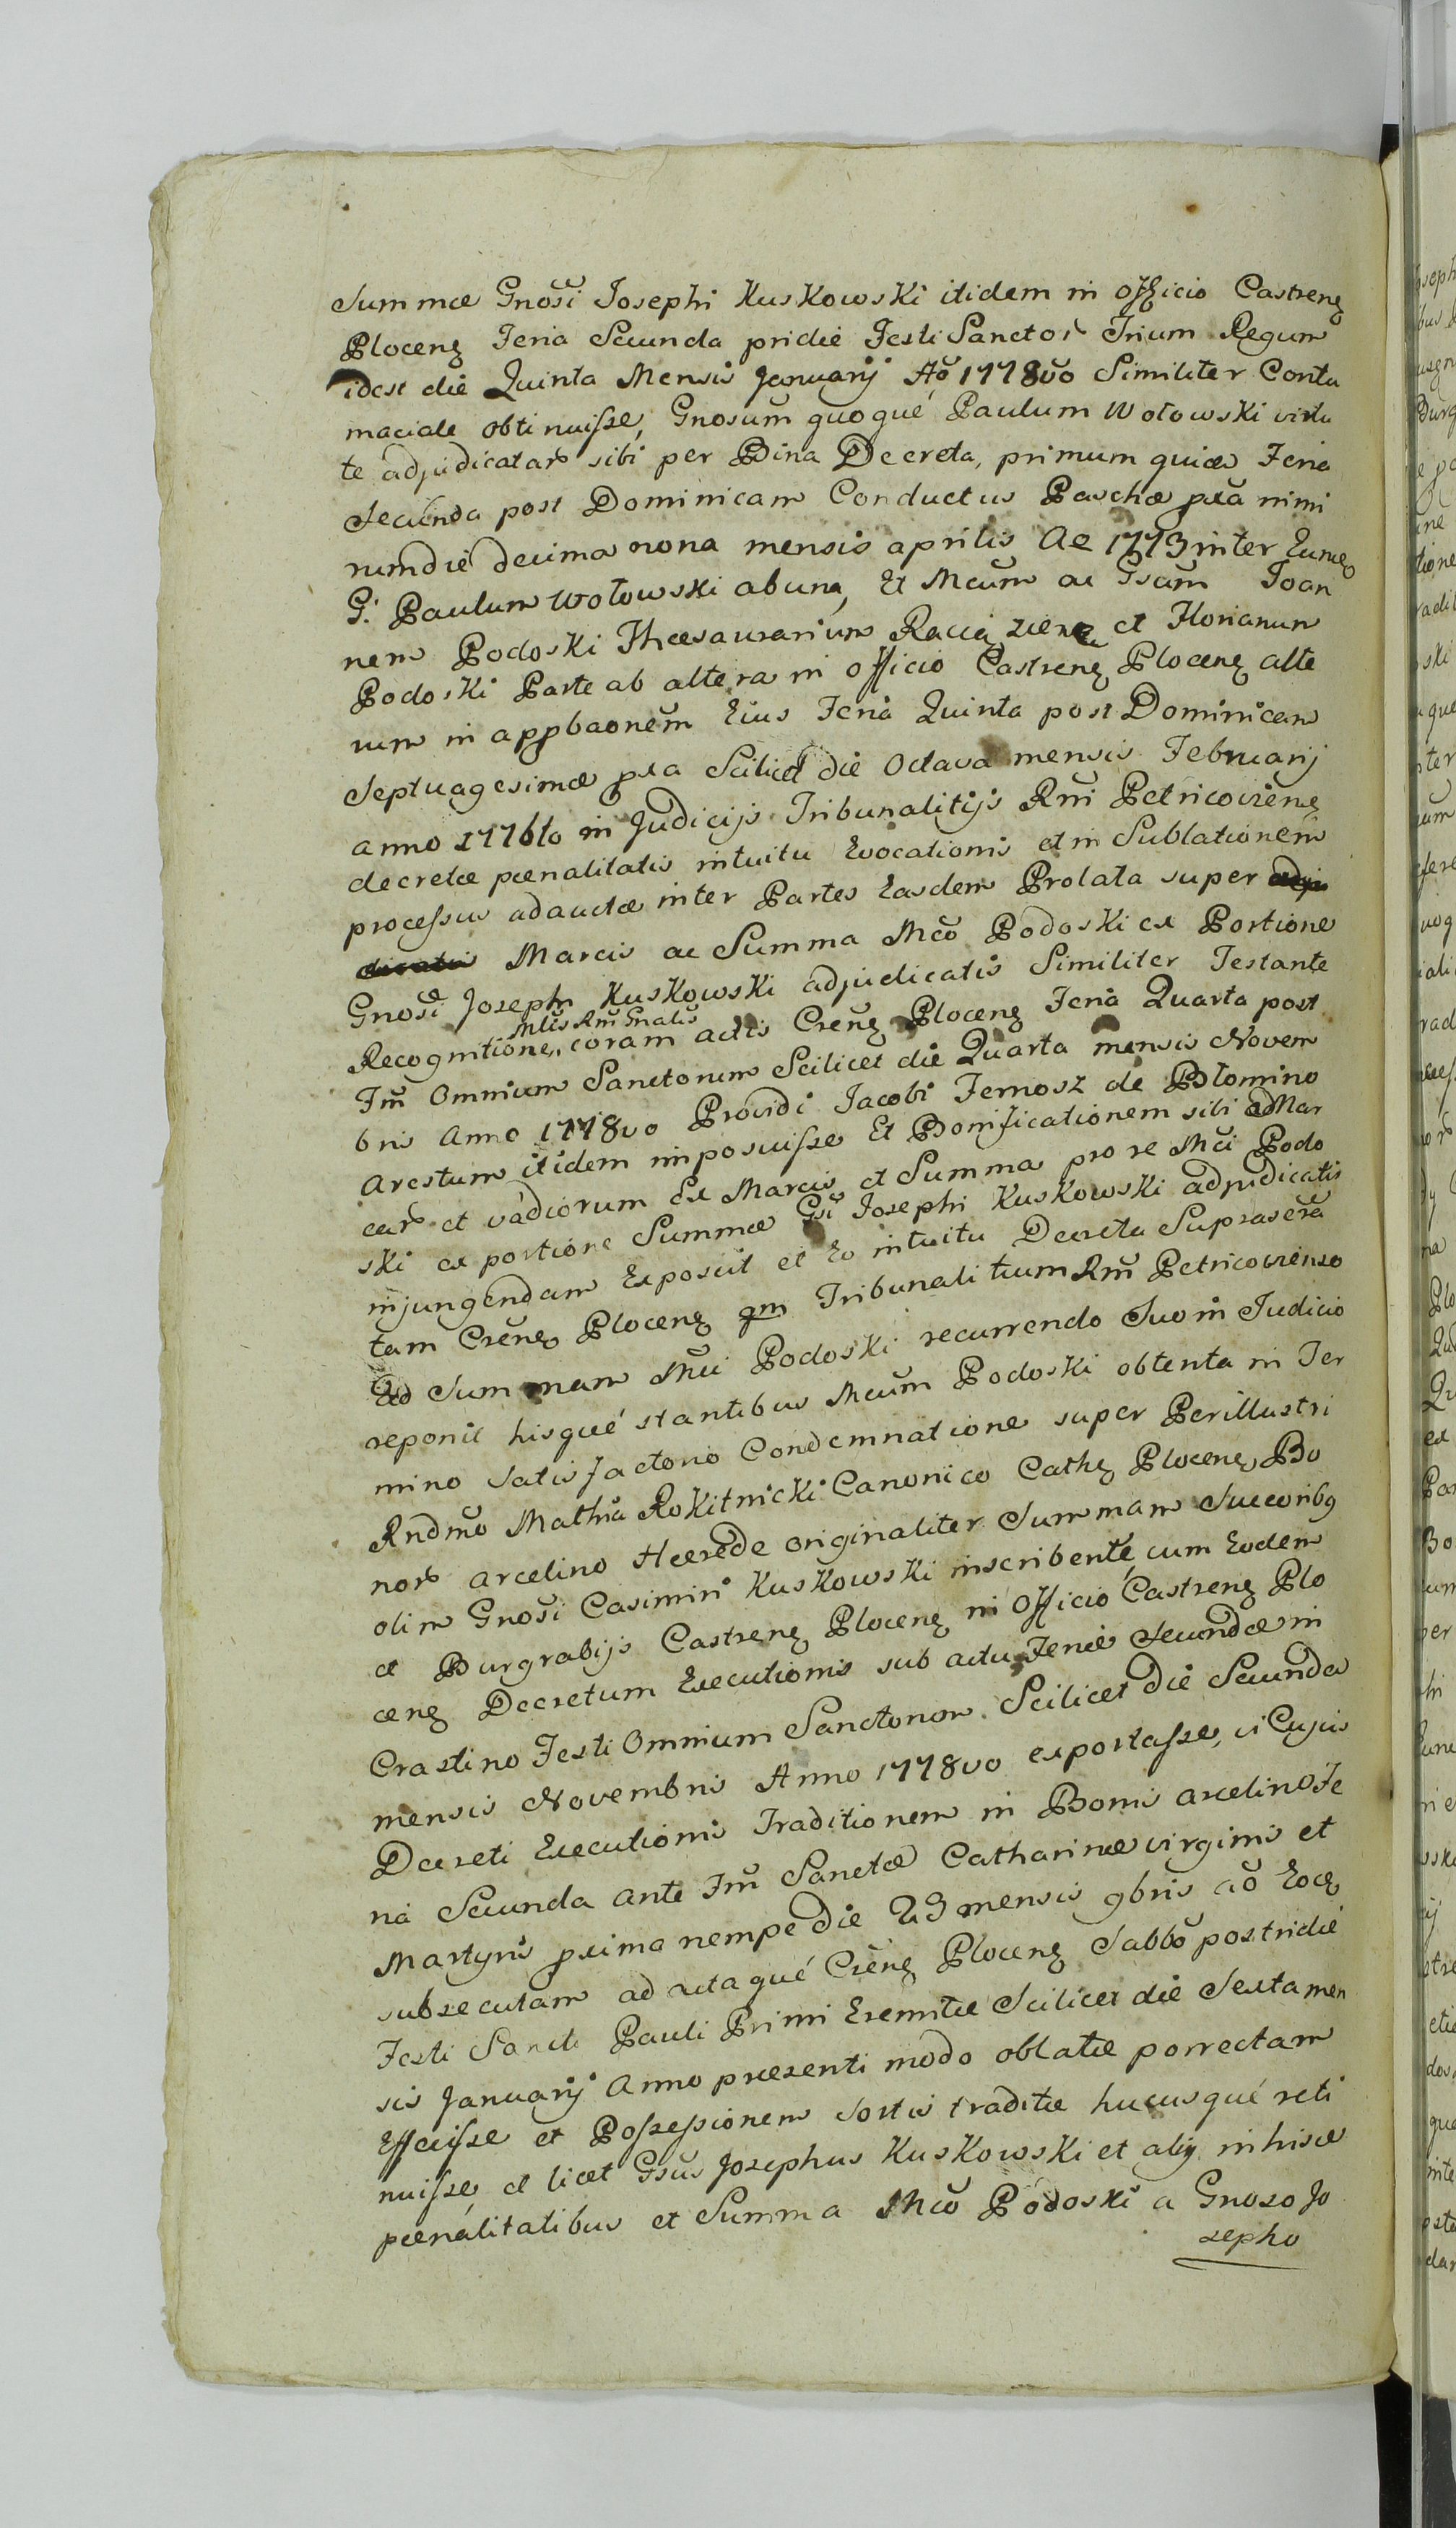 Summæ Gnosi Josephi Kuskowski itidem in Officio Castreng
Ploceng Feria Secunda pridie Festi Sanctor Trium Regum
idest die Quinta Mensis Januarij Aö 1778vo Similiter Contu
maciale obtinuisse, Gnosum quoque Paulum Wołowski virtu
te adjudicatar sibi per Bina Decreta, primum quia Feria
Secunda post Dominicam Conductus Paschæ pxa nimi
rum die decima nona mensis aprilis Ae 1773 inter Eumeo
G. Paulum Wołowski ab una, Et Mcum ac Gsum Joan
nem Podoski Thæsaurarium Raciązieng et Florianum
Podoski Parte ab altera in officio Castreng Ploceng alte
rum in appbaonem Eius Feria Quinta post Dominicam
Septuagesimæ pxa Scilicet die Octava mensis Februarij
anno 1776to in Judicijs Tribunalitijs Rni Petricovieng
decretæ pænalitatis intuitu Evocationis et in Sublationem
processus adauctæ inter Partes Easdem Prolata super adju
dicatis Marcis ac Summa Mco Podoski ex Portione
Gnosi Joseph Kuskowski adjudicatis Similiter Testante
Recognitione, Mlis Rni Gnalis coram actis Creng Ploceng Feria Quarta post
Fm Omnium Sanctorum Scilicet die Quarta mensis Novem
bris Anno 1778vo Providi Jacobi Fernosz de Błomino
Arestum itidem imposuisse Et Bonificationem sibi ad Mar
car et vadiorum Ex Marcis et Summa pro re Mci Podo
ski ex portione Summæ Gsi Josephi Kuskowski adjudicatis
injungendam Exposcit et Eo intuitu Decreta Suprascra
tam Creng Ploceng qm Tribunalitium Rni Petricovienso
Ad Summam Mci Podoski recurrendo Suo in Judicio
reponit hisque stantibus Mcum Podoski obtenta in Ter
mino satisfactorio Condemnatione super Perillustri
Rndmo Mathia Rokitnicki Canonico Cathg Ploceng Bo
nor arcelino Hærede originaliter Summam Succoribq
olim Gnosi Casimiri Kuskowski inscribente, cum Eodem
et Burgrabijs Castreng Ploceng in Officio Castreng Plo
ceng Decretum Executionis sub actu Feriæ Secundæ in
Crastino Festi Omnium Sanctoror Scilicet die Secunda
mensis Novembris Anno 1778vo exportasse, vi Cujus
Decreti Executionis Traditionem in Bonis arcelino Fe
ria Secunda ante Fm Sanctæ Catharinæ virginis et
Martyris pxima nempe die 23 mensis 9bris aö Eoq
subsecutam ad actaque Creng Ploceng Sabbo postridie
Festi Sancti Pauli Primi Eremitæ Scilicet die Sexta men
sis Januarij Anno præsenti modo oblatæ porrectam
Effecisse et Possessionem Sortis traditæ hucusque reti
nuisse et licet Gsus Josephus Kuskowski et alij in hisce
pænalitatibus et Summa Mco Podoski a Gnoso Jo
sepho